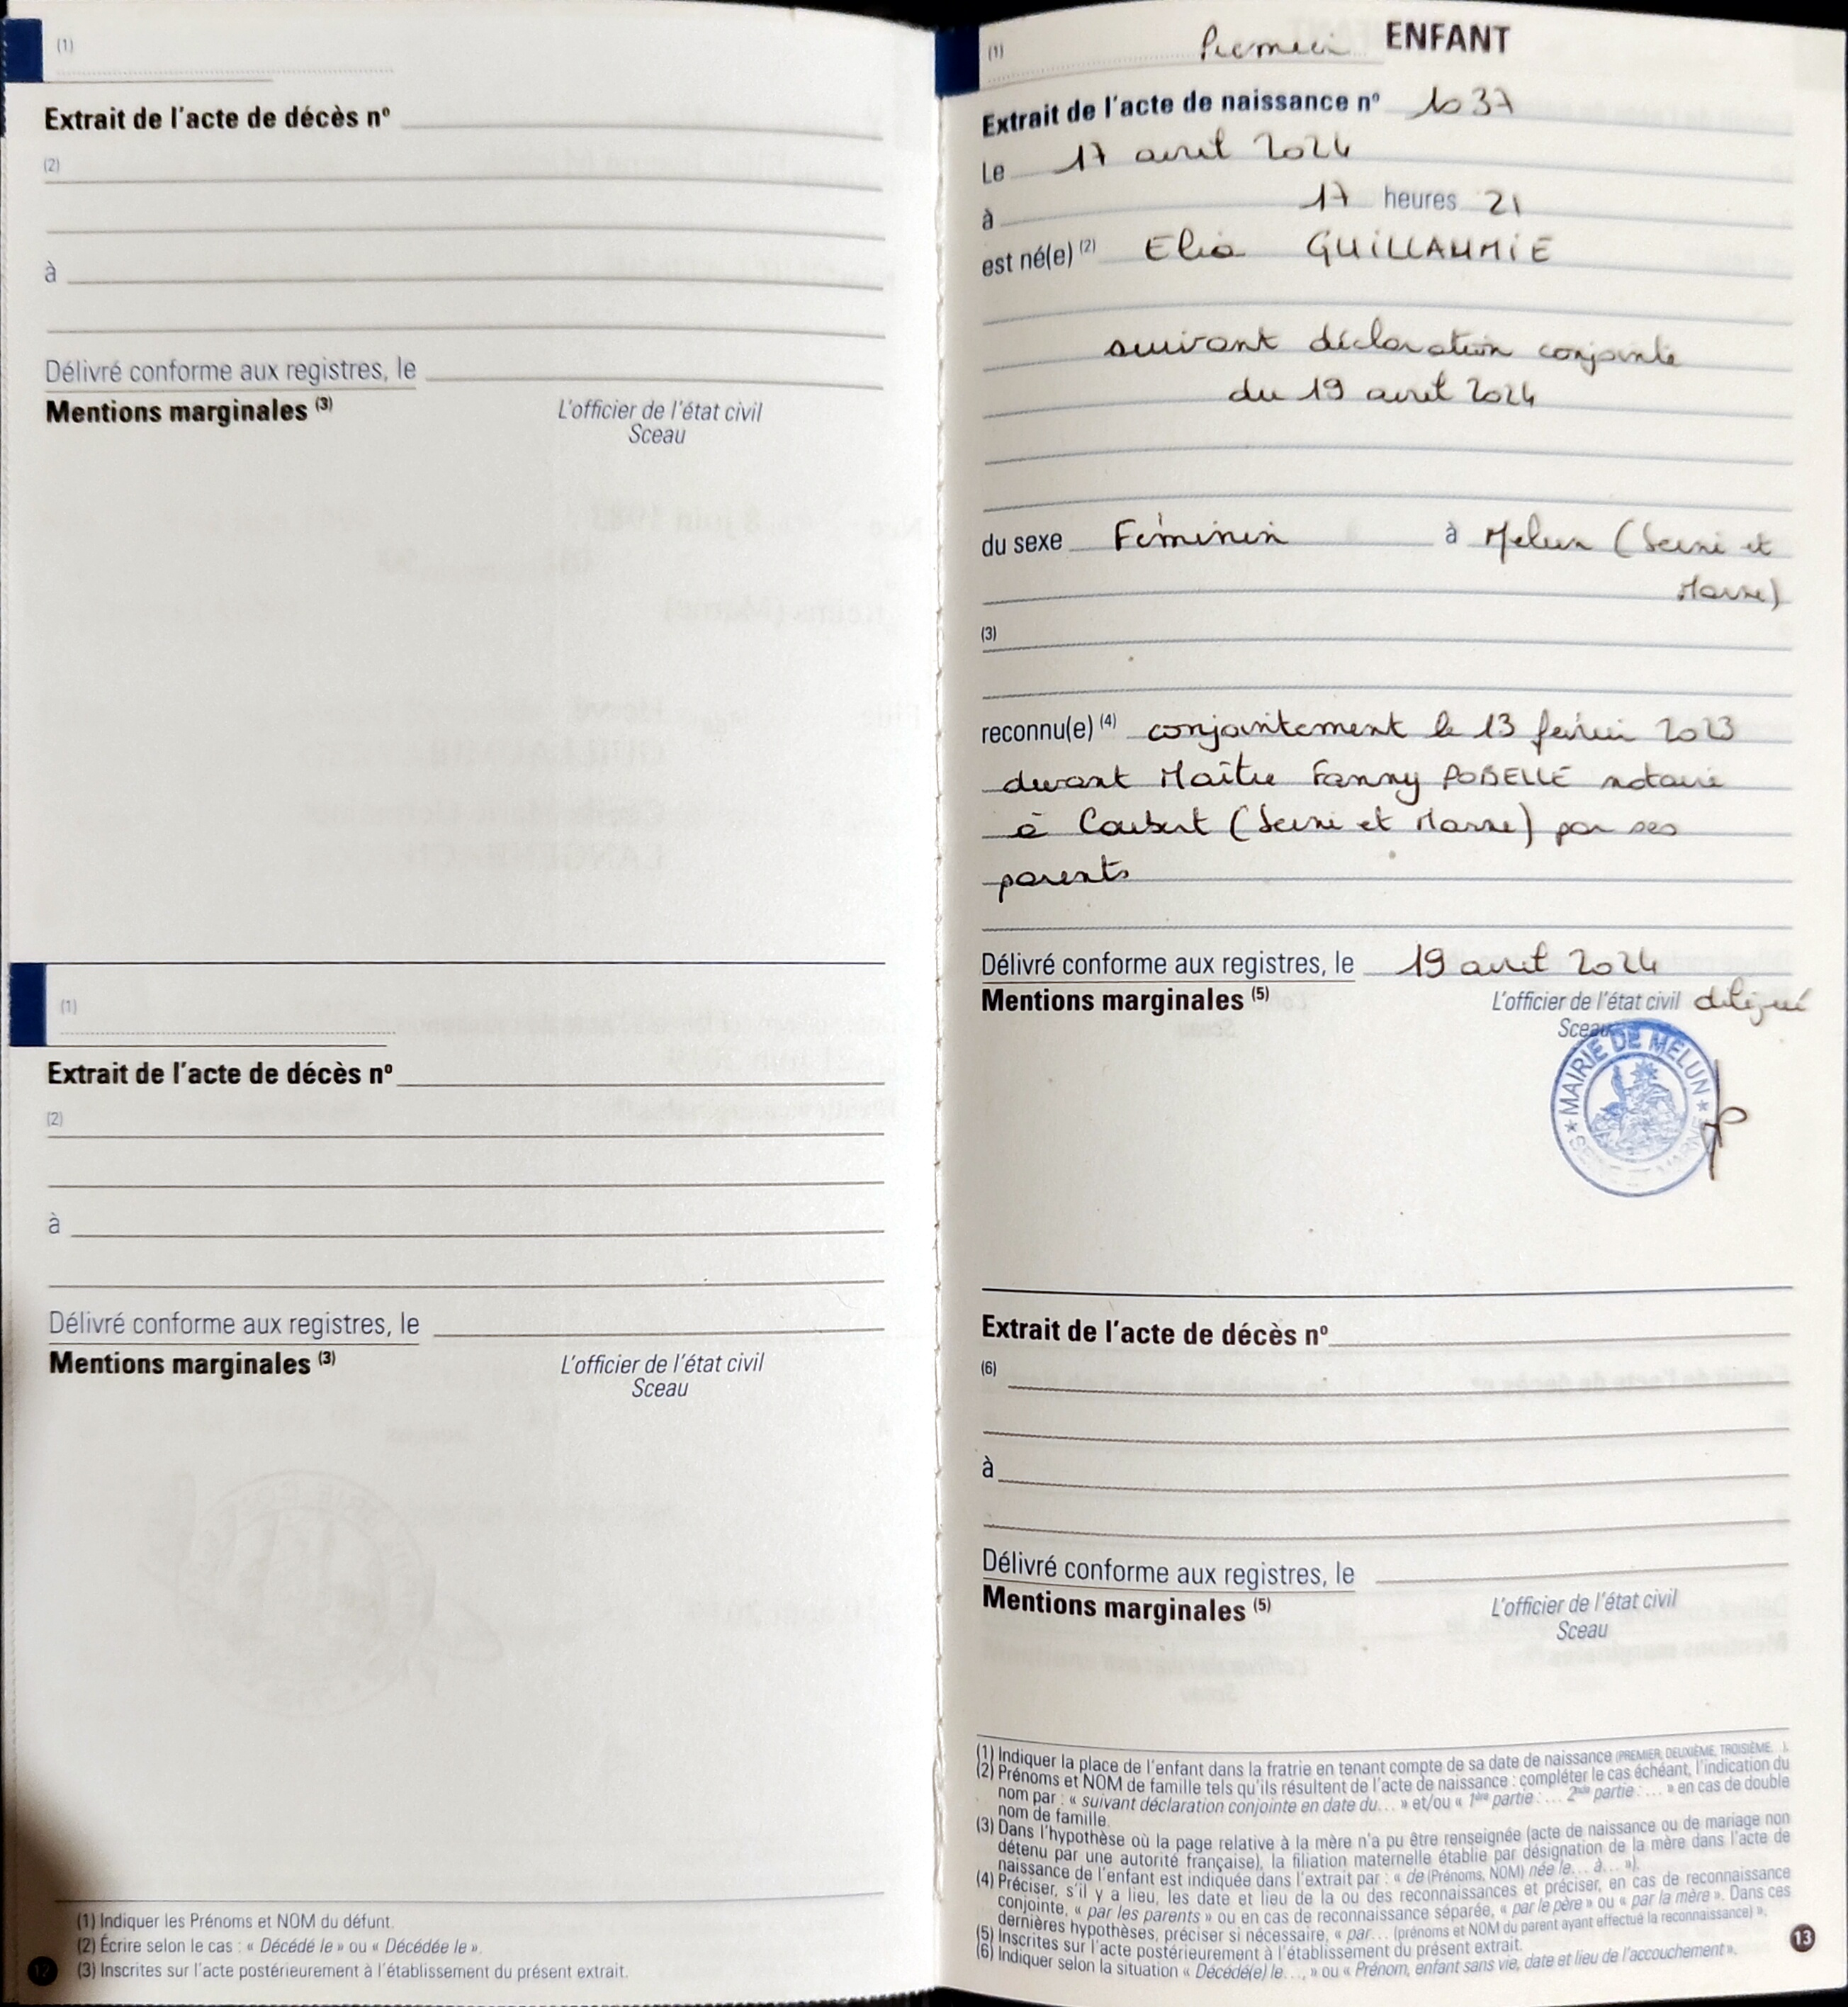 (1)
Extrait de l'acte de décès nº
(2)
à
Délivré conforme aux registres, le
Mentions marginales (3)
L'officier de l'état civil
Sceau
(1)
Extrait de l'acte de décès nº
(2)
à
Délivré conforme aux registres, le
Mentions marginales (3)
L'officier de l'état civil
Sceau
(1) Indiquer les Prénoms et NOM du défunt.
(2) Écrire selon le cas : « Décédé le » ou « Décédée le ».
(3) Inscrites sur l'acte postérieurement à l'établissement du présent extrait.
12
(1) Premier ENFANT
Extrait de l'acte de naissance nº 1037
Le 17 avril 2024
à 17 heures 21
est né(e) (2) Elia GUILLAUMIE
suivant déclaration conjointe
du 19 avril 2024
du sexe Féminin à Melun (Seine et
Marne)
(3)
reconnu(e) (4) conjointement le 13 février 2023
devant Maître Fanny POBELLE notaire
à Coubert (Seine et Marne) par ses
parents
Délivré conforme aux registres, le 19 avril 2024
Mentions marginales (5)
L'officier de l'état civil délégué
Sceau
MAIRIE DE MELUN
SEINE ET MARNE
Extrait de l'acte de décès nº
(6)
à
Délivré conforme aux registres, le
Mentions marginales (5)
L'officier de l'état civil
Sceau
(1) Indiquer la place de l'enfant dans la fratrie en tenant compte de sa date de naissance (PREMIER, DEUXIÈME, TROISIÈME, ).
(2) Prénoms et NOM de famille tels qu'ils résultent de l'acte de naissance : compléter le cas échéant, l'indication du
nom par : « suivant déclaration conjointe en date du... » et/ou « 1ère partie : ... 2nde partie : ... » en cas de double
nom de famille.
(3) Dans l'hypothèse où la page relative à la mère n'a pu être renseignée (acte de naissance ou de mariage non
détenu par une autorité française), la filiation maternelle établie par désignation de la mère dans l'acte de
naissance de l'enfant est indiquée dans l'extrait par : « de (Prénoms, NOM) née le... à... »).
(4) Préciser, s'il y a lieu, les date et lieu de la ou des reconnaissances et préciser, en cas de reconnaissance
conjointe, « par les parents » ou en cas de reconnaissance séparée, « par le père » ou « par la mère ». Dans ces
dernières hypothèses, préciser si nécessaire, « par... (prénoms et NOM du parent ayant effectué la reconnaissance) ».
(5) Inscrites sur l'acte postérieurement à l'établissement du présent extrait.
(6) Indiquer selon la situation « Décédé(e) le..., » ou « Prénom, enfant sans vie, date et lieu de l'accouchement ».
13